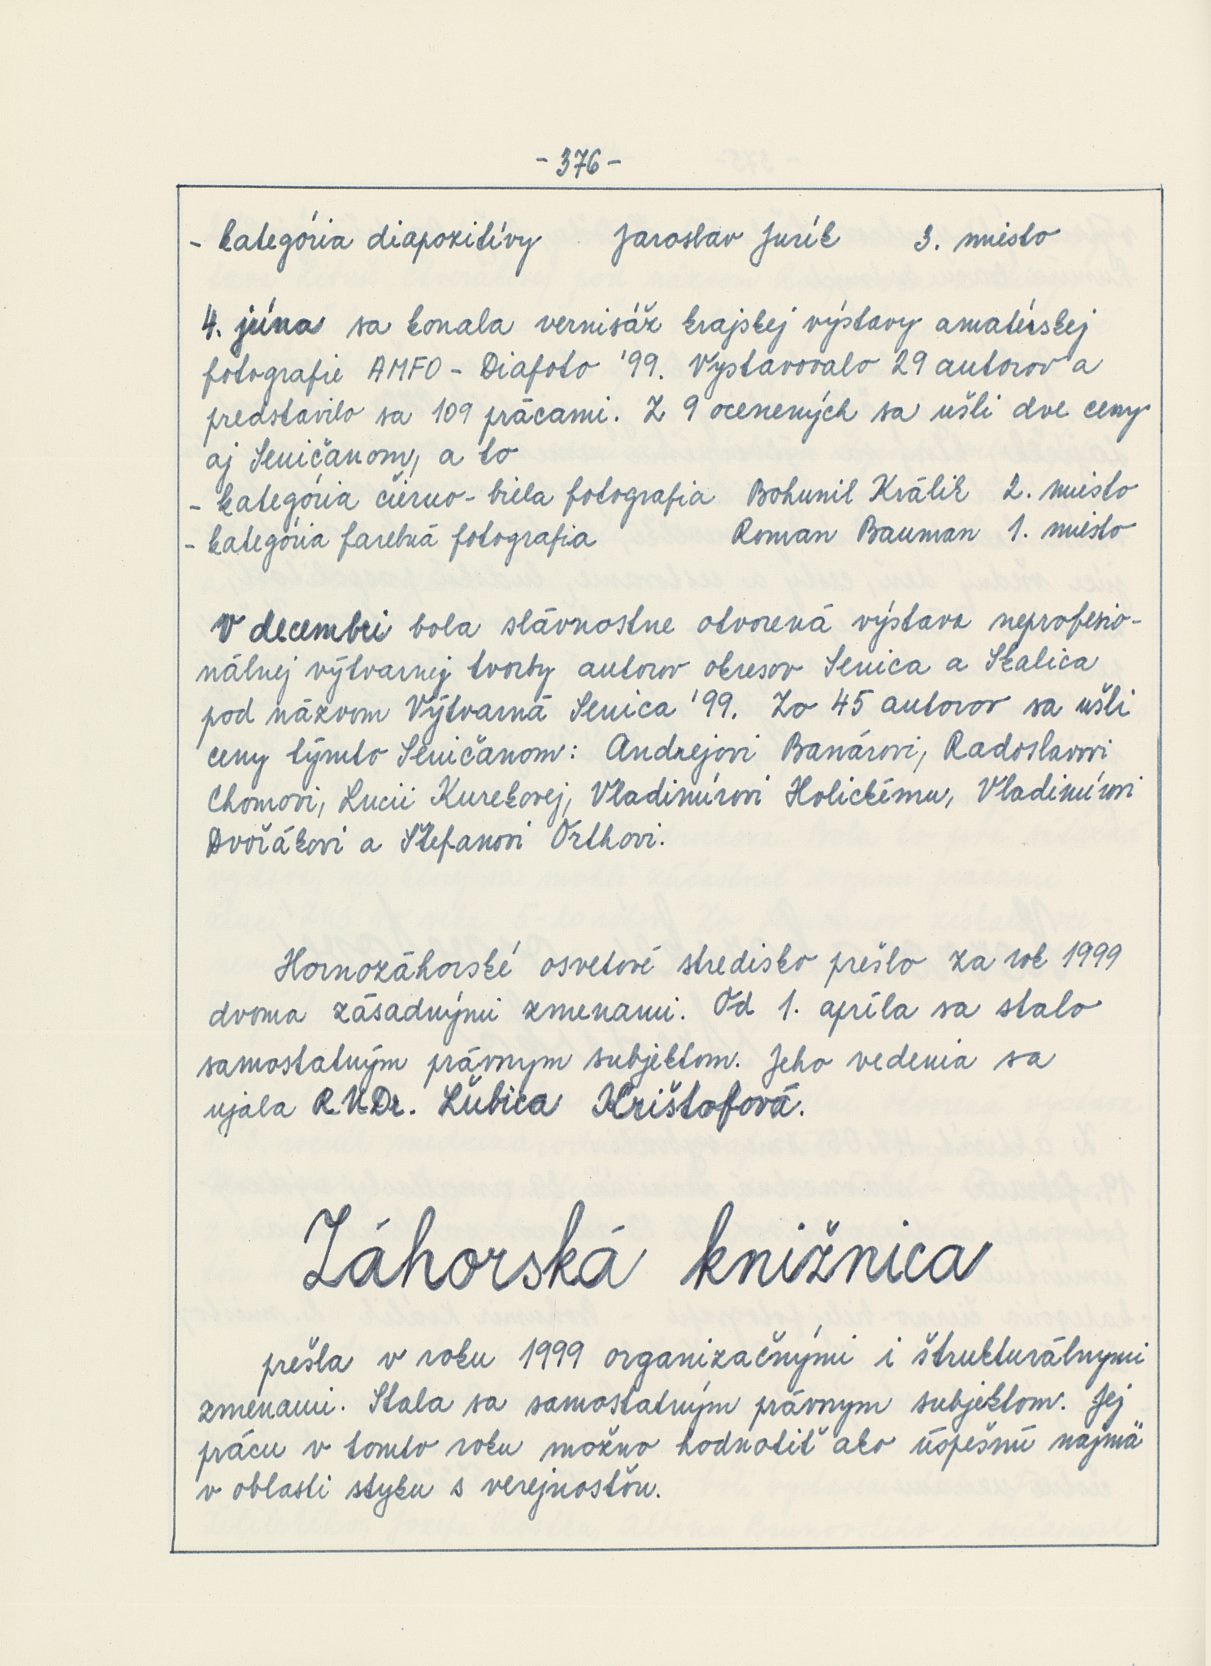 - 376 -
- kategória diapozitívy Jaroslav Jurík 3. miesto
4. júna sa konala vernisáž krajskej výstavy amatérskej
fotografie AMFO - Diafoto '99. Vystavovalo 29 autorov a
predstavilo sa 109 prácami. Z 9 ocenených sa ušli dve ceny
aj Seničanom, a to
- kategória čierno-biela fotografia Bohumil Králik 2. miesto
- kategória farebná fotografia Roman Bauman 1. miesto
V decembri bola slávnostne otvorená výstava neprofesio-
nálnej výtvarnej tvorby autorov okresov Senica a Skalica
pod názvom Výtvarná Senica '99. Zo 45 autorov sa ušli
ceny týmto Seničanom: Andrejovi Banárovi, Radoslavovi
Chomovi, Lucii Kurekovej, Vladimírovi Holickému, Vladimírovi
Dvořákovi a Štefanovi Orthovi.
Hornozáhorské osvetové stredisko prešlo za rok 1999
dvoma zásadnými zmenami. Od 1. apríla sa stalo
samostatným právnym subjektom. Jeho vedenia sa
ujala RNDr. Ľubica Krištofová.
Záhorská knižnica
prešla v roku 1999 organizačnými i štrukturálnymi
zmenami. Stala sa samostatným právnym subjektom. Jej
prácu v tomto roku možno hodnotiť ako úspešnú najmä
v oblasti styku s verejnosťou.